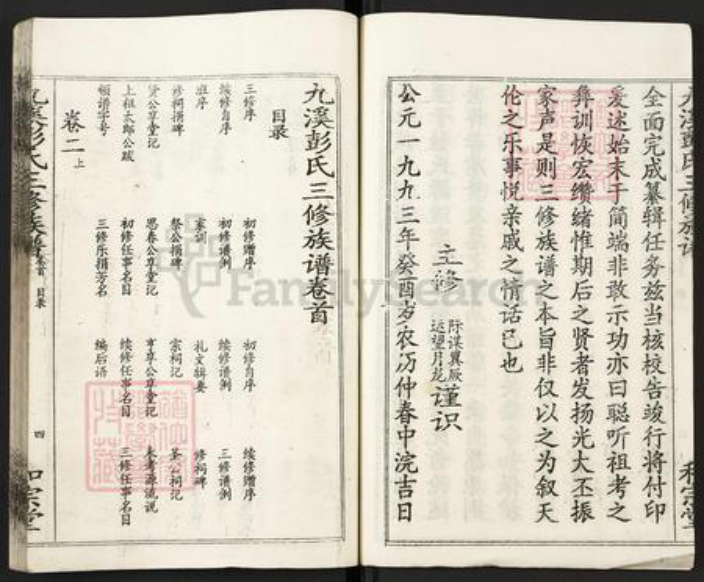 九溪彭氏三修族谱
和宗堂
全面完成纂辑任务兹当核校告竣行将付印
爰述始末于简端非敢示功亦曰聪听祖考之
彝训恢宏缵绪惟期后之贤者发扬光大丕振
家声是则三修族谱之本旨非仅以之为叙天
伦之乐事悦亲戚之情话已也
主修
际谋翼厥
运望月龙
谨识
公元一九九三年癸酉岁农历仲春中浣吉日
九溪彭氏三修族谱卷首
目录
三修序 初修赠序 初修自序 续修赠序
续修自序 初修谱例 续修谱例 三修谱例
班序 家训 礼文辑要 修祠碑
修祠捐碑 祭公捐碑 宗祠记 公祠记
贤公享堂记 思春公享堂记 亨享公享堂记 考源流说
上祖太郎公跋 初修任事名目 续修任事名目 三修任事名目
领谱字号 三修乐捐芳名 编后语
卷二上
九溪彭氏三修族谱
卷首 目录
四
和宗堂
FamilySearch